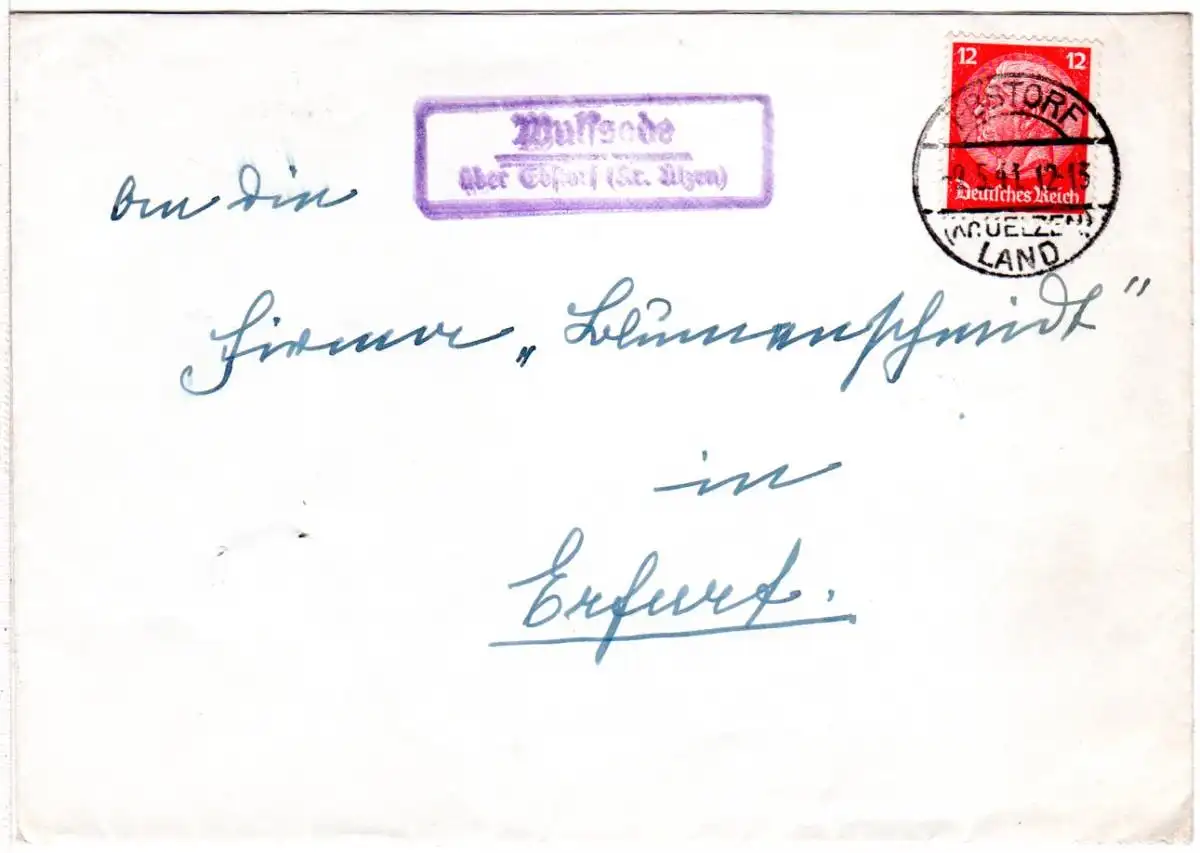 12 12
EBSTORF
-9.5.41.12-13
Deutsches Reich
(KR. UELZEN)
LAND
Wulfsode
über Ebstorf (Kr. Ülzen)
An die
Firma „Blumenschmidt"
in
Erfurt.